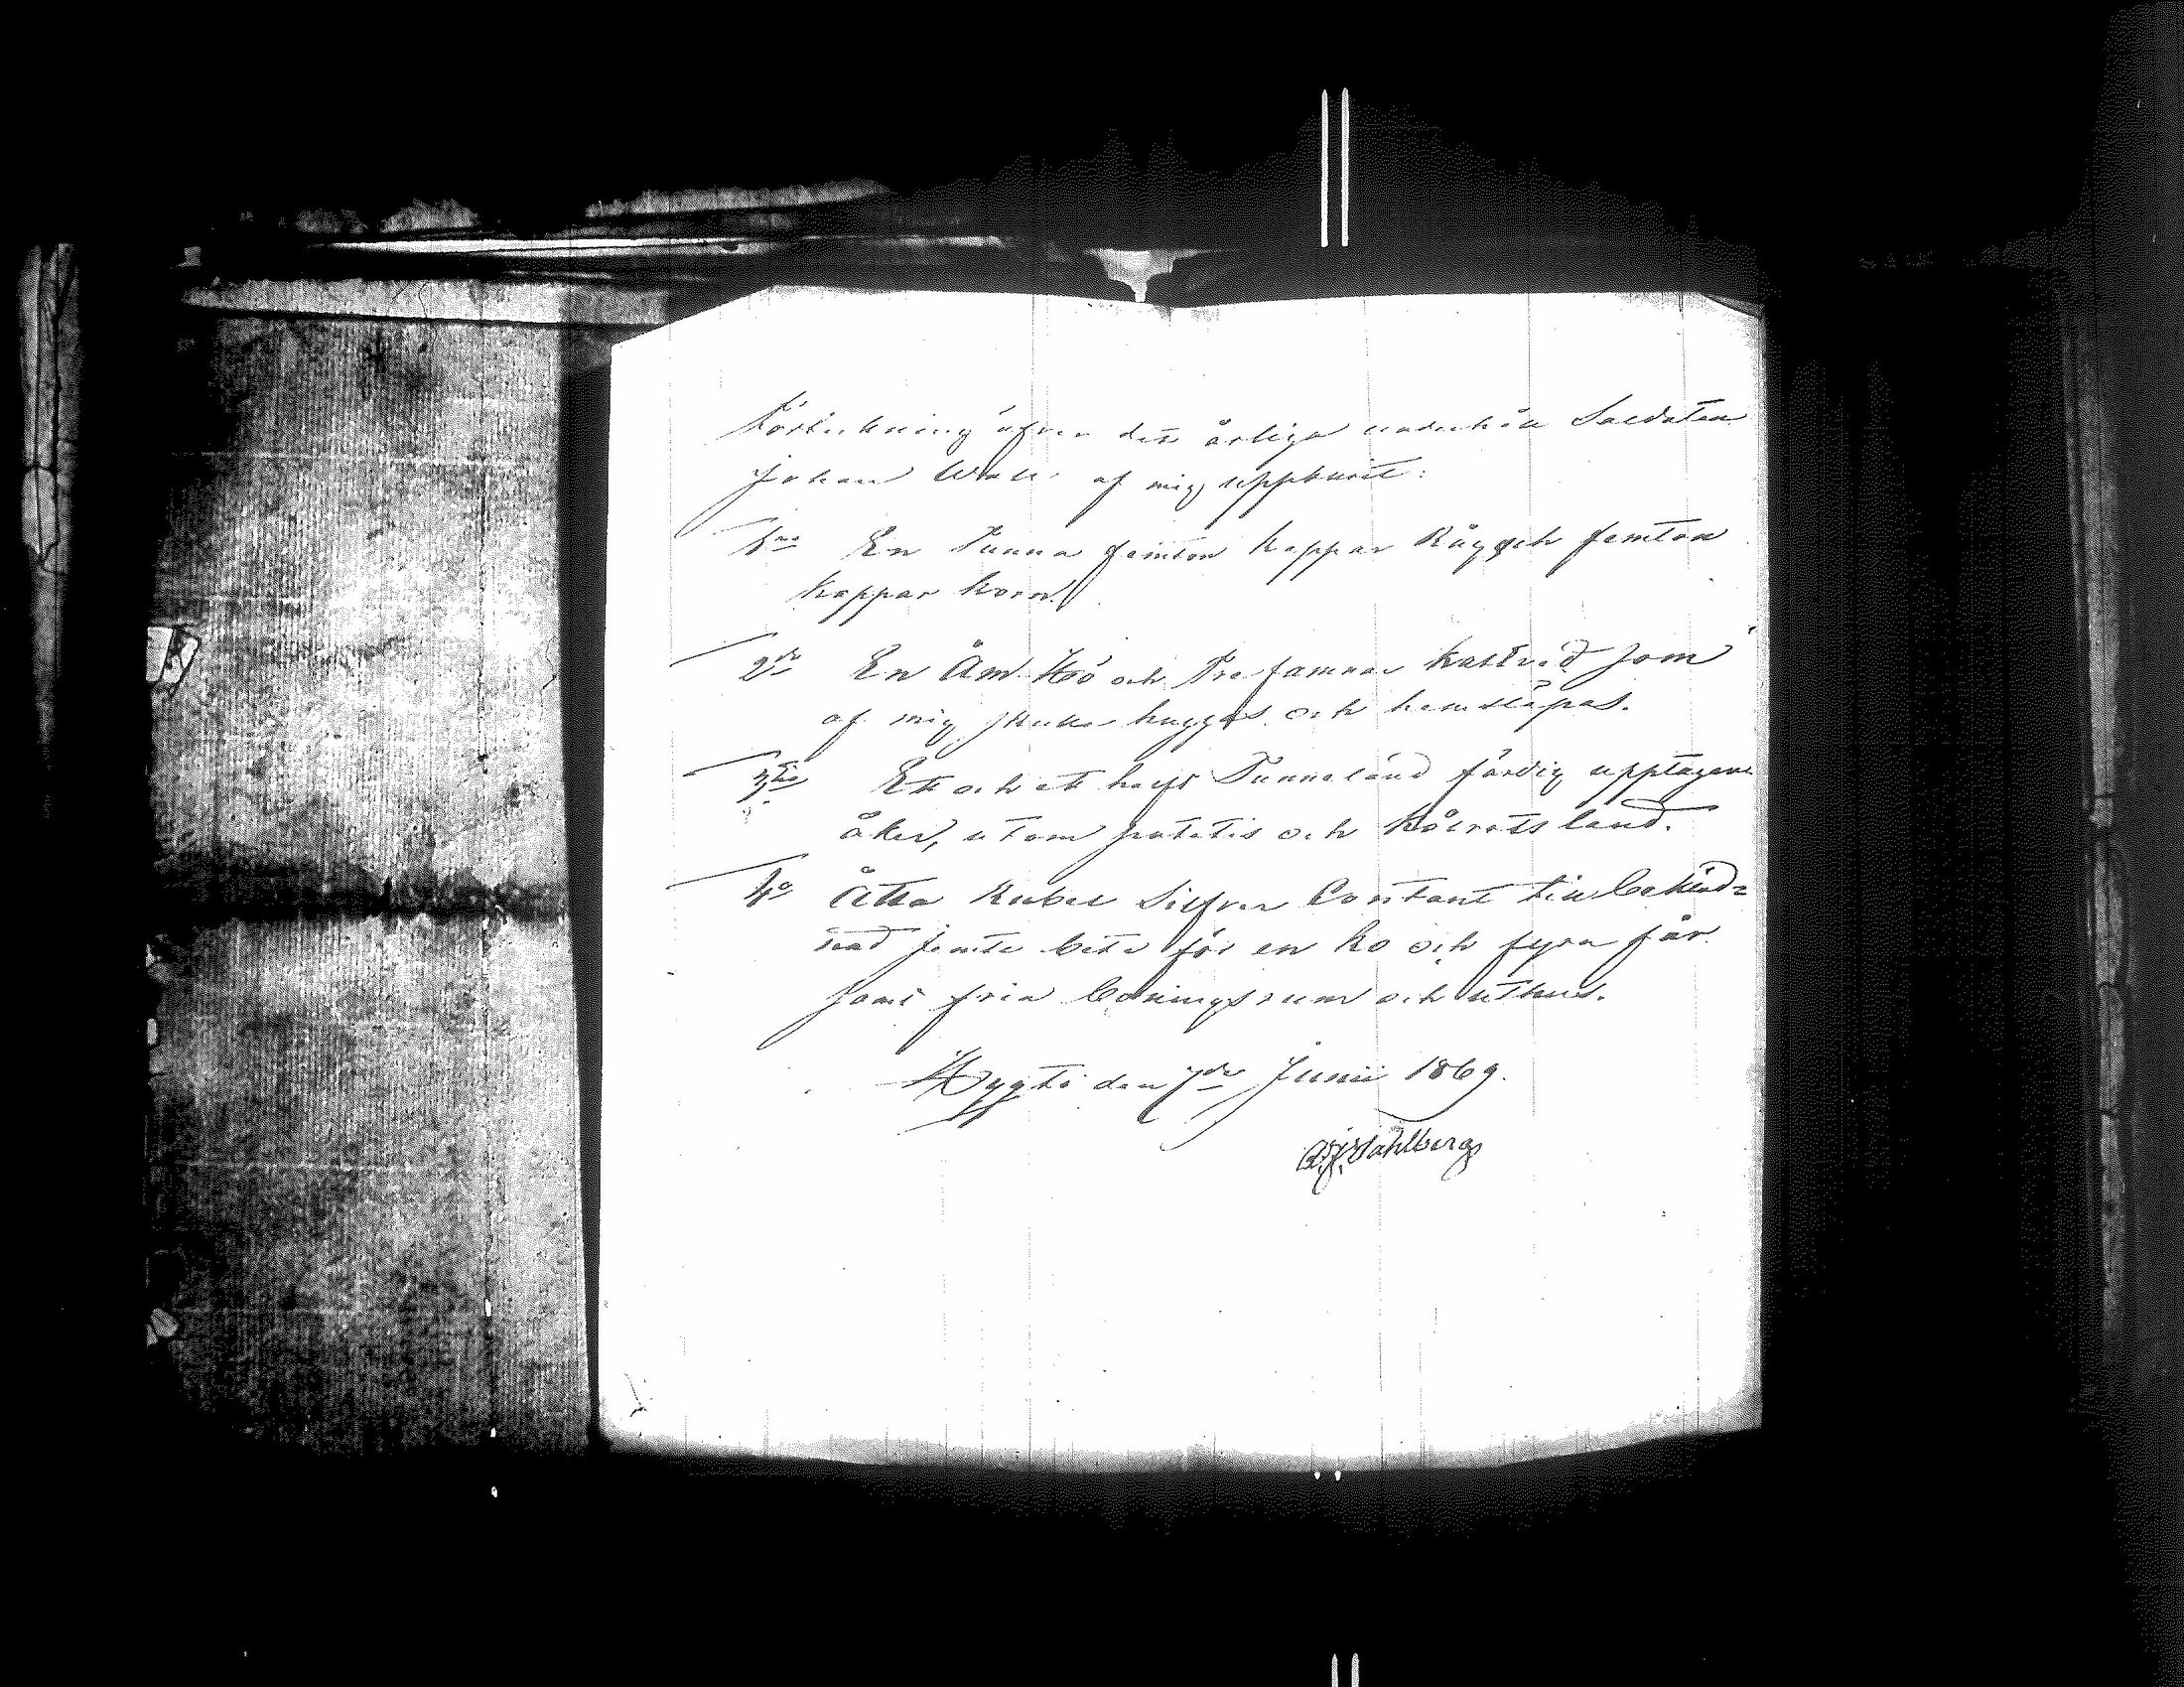 Förteckning öfver det årliga underhåll Soldaten
Johan Wall af mig uppburit:
1mo En Tunna femton Kappar Råg och femton
Kappar Korn.
2do En Åm Höö och Tre famnar Kastved som
af mig skulle huggas och hemsläpas.
3tio Ett och ett halft Tunneland färdig upptagen
åker, utom potatis och Kålrots land.
4o Åtta Rubel Silfver Contant till bekläd=
nad jemte bete för en ko och fyra får
samt fria boningsrum och uthus.
den 7de Junii 1869.
Dahlberg